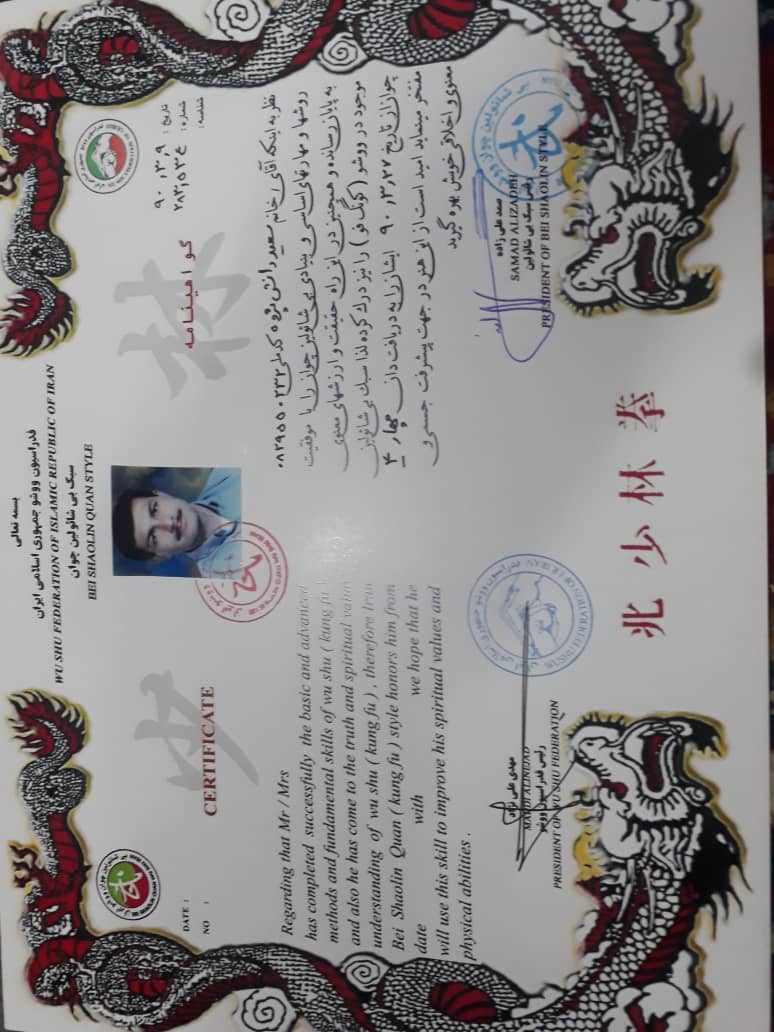 بسمه تعالی
فدراسیون ووشو جمهوری اسلامی ایران
WU SHU FEDERATION OF ISLAMIC REPUBLIC OF IRAN
سبک بی شائولین جوان
BEI SHAOLIN QUAN STYLE
少
林
CERTIFICATE
DATE :
NO :
Regarding that Mr / Mrs
has completed successfully the basic and advanced
methods and fundamental skills of wu shu ( kung fu )
and also he has come to the truth and spiritual
understanding of wu shu ( kung fu ) , therefore
Bei Shaolin Quan ( kung fu ) style honors him from
date with we hope that he
will use this skill to improve his spiritual values and
physical abilities .
گواهینامه
تاریخ :
شماره :
شناسه :
نظر به اینکه آقای / خانم سعید دانش پژوه کدملی
روشها و مهارتهای اساسی و بنیادی بی شائولین جوان را با موفقیت
به پایان رسانده و همچنین در این راه حقیقت و ارزشهای معنوی
موجود در ووشو (کونگ فو) را نیز درک کرده لذا سبک بی شائولین
جوان از تاریخ ۹۰,۳,۲۷ ایشان را به دریافت دان چهار ۴
مفتخر مینماید امید است از این هنر در جهت پیشرفت جسمی و
معنوی و اخلاقی خویش بهره گیرید
مهدی علی نژاد
MAHDI ALINEJAD
رئیس فدراسیون ووشو
PRESIDENT OF WU SHU FEDERATION
صمد علی زاده
SAMAD ALIZADEH
رئیس سبک بی شائولین
PRESIDENT OF BEI SHAOLIN STYLE
北少林拳